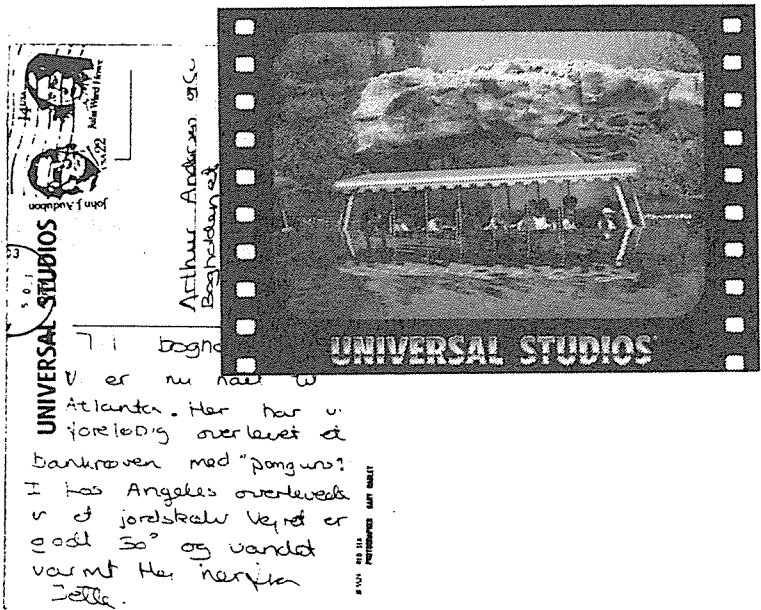 14USA
Julia Ward Howe
USA 22
John J. Audubon
UNIVERSAL STUDIOS
Arthur Andersen
Bogholderiet
UNIVERSAL STUDIOS
Til
Vi er nu nået til
Atlanta. Her har vi
foreløbig overlevet et
bankrøveri med
I Los Angeles overlevede
vi et jordskælv Vejret er
godt 30° og vandet
varmt
Jette.
PHOTOGRAPHER